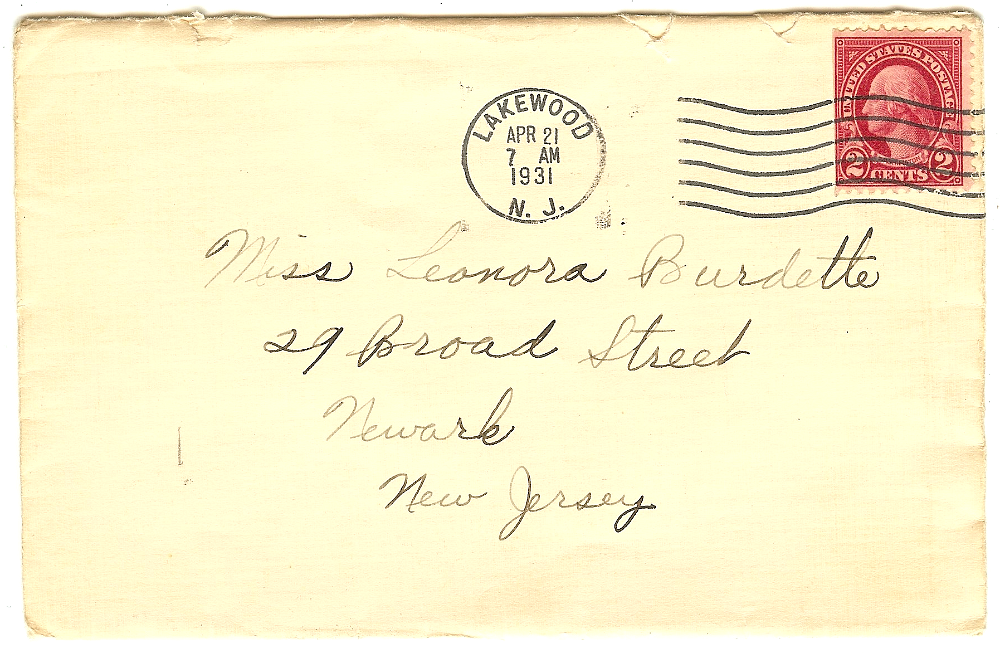 UNITED STATES POSTAGE
2 CENTS 2
LAKEWOOD
APR 21
7 AM
1931
N. J.
Miss Leonora Burdette
29 Broad Street
Newark
New Jersey